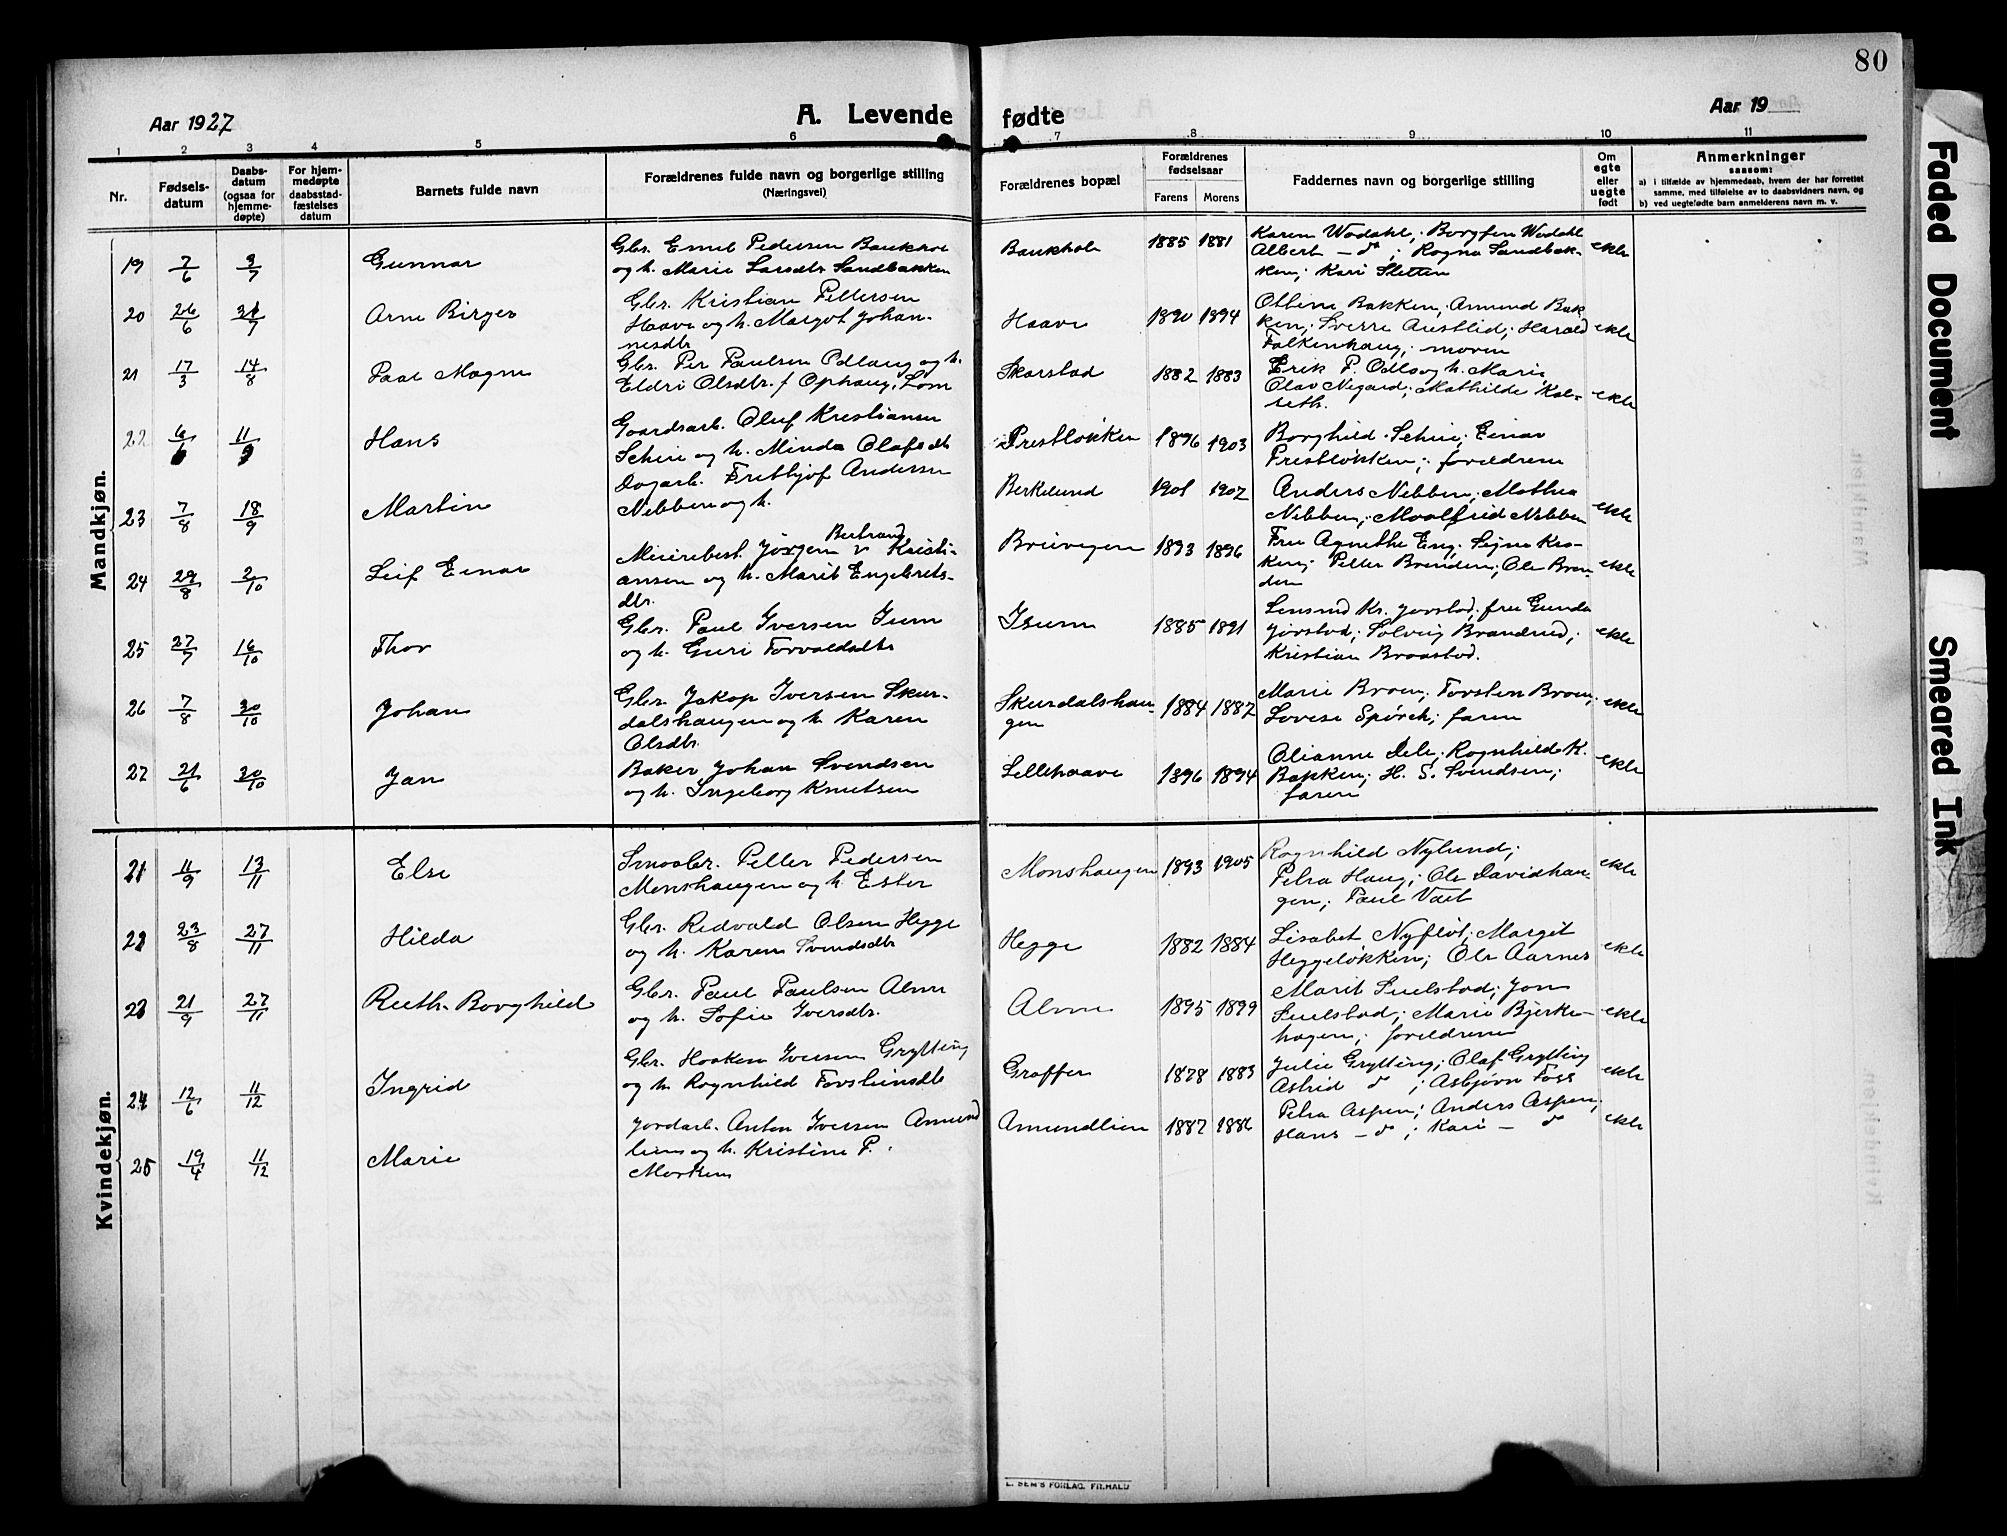 80
Aar 1927
A. Levende
fødte
Aar 19
1 2 3 4 5 6 7 8 9 10 11
Nr.
Fødsels-
datum
Daabs-
datum
(ogsaa for
hjemme-
døpte)
For hjem-
medøpte
daabsstad-
fæstelses
datum
Barnets fulde navn
Forældrenes fulde navn og borgerlige stilling
(Næringsvei)
Forældrenes bopæl
Forældrenes
fødselsaar
Farens Morens
Faddernes navn og borgerlige stilling
Om
egte
eller
uegte
født
Anmerkninger
saasom:
a) i tilfælde av hjemmedaab, hvem der har forrettet
samme, med tilføielse av to daabsvidners navn, og
b) ved uegtefødte barn anmelderens navn m. v.
Mandkjøn.
19 7/6 3/7 Gunnar
Gbr. Emil Pedersen Baukhol
og h. Marie Larsdtr Sandbakken
Baukhol 1885 1881
Karen Wadahl; Borgfin Wadahl
Albert - do; Ragna Sandbak-
ken; Kari Sletten
ekte
20 26/6 31/7 Arne Birger
Gbr. Kristian Pettersen
Haave og h. Margot Johan-
nesdtr
Haave 1890 1894
Oline Bakken; Amund Bak-
ken; Sverre Austlid; Harald
Falkenhaug; moren
ekte
21 17/3 14/8 Paal Magne
Gbr. Per Paulsen Odlaug og h.
Eldri Olsdtr. f Ophaug, Lom
Skarstad 1882 1883
Erik P. Odls og h. Marie
Olav Negard; Mathilde Kol-
seth.
ekte
22 6/6 11/9 Hans
Gaardsarb. Oluf Kristiansen
Schei og h. Minda Olafsdtr
Prestløkken 1896 1903
Borghild Schei; Einar
Prestløkken; forældrene
23 7/8 18/9 Martin
Dagarb. Frithjof Andersen
Nebben og h.
Berkelund 1901 1902
Anders Nebben; Mathea
Nebben; Maalfrid Nebben
ekte
24 29/8 2/10 Leif Einar
Bertrand
Meieribest. Jørgen v Kristi-
ansen og h. Marit Engebrets-
dtr.
Breivegen 1893 1896
Fru Agnethe Eng; Signe Kro-
ken; Petter Brenden; Ole Bren-
den
ekte
25 27/7 16/10 Thor
Gbr. Paul Iversen Isum
og h. Guri Torvaldsdtr
Isum 1885 1891
Lensmd Kr. Jorstad; fru Gunda
Jorstad; Solveig Brandrud;
Kristian Braastad.
ekte
26 7/8 30/10 Johan
Gbr. Jakop Iversen Skur-
dalshaugen og h. Karen
Olsdtr.
Skurdalshau-
gen 1884 1887
Marie Broen; Torsten Broen;
Lovise Spørck; faren
ekte
27 21/6 30/10 Jan
Baker Johan Svendsen
og h. Ingeborg Knutsen
Lillehaave 1896 1894
Olianne Dele; Ragnhild K.
Bakken; H. S. Svendsen;
faren
ekte
Kvindekjøn.
21 11/9 13/11 Else
Smaabr. Petter Pedersen
Monshaugen og h. Ester
Monshaugen 1893 1905
Ragnhild Nylund;
Petra Haug; Ole Davidhau-
gen; Paul Valt
ekte
22 23/8 27/11 Hilda
Gbr. Redvald Olsen Hegge
og h. Karen Svendsdtr
Hegge 1882 1884
Lisabet Nyfløt; Margit
Heggeløkken; Ole Aarnes
ekte
23 21/9 27/11 Ruth Borghild
Gbr. Paul Paulsen Alme
og h. Sofie Iversdtr.
Alme 1895 1899
Marit Suelstad; Jon
Suelstad; Marie Bjerke-
hagen; forældrene
ekte
24 12/6 11/12 Ingrid
Gbr. Haaken Iversen Grytting
og h. Ragnhild Torsteinsdtr
Graffer 1878 1883
Julie Grytting; Olaf Grytting
Astrid do; Asbjørn Foss
ekte
25 19/4 11/12 Marie
Jordarb. Anton Iversen Amund
lien og h. Kristine P.
Morken
Amundlien 1887 1886
Petra Aspen; Anders Aspen;
Hans - do; Kari - do
ekte
E. SEM'S FORLAG, FR.HALD
Faded Document
Smeared Ink